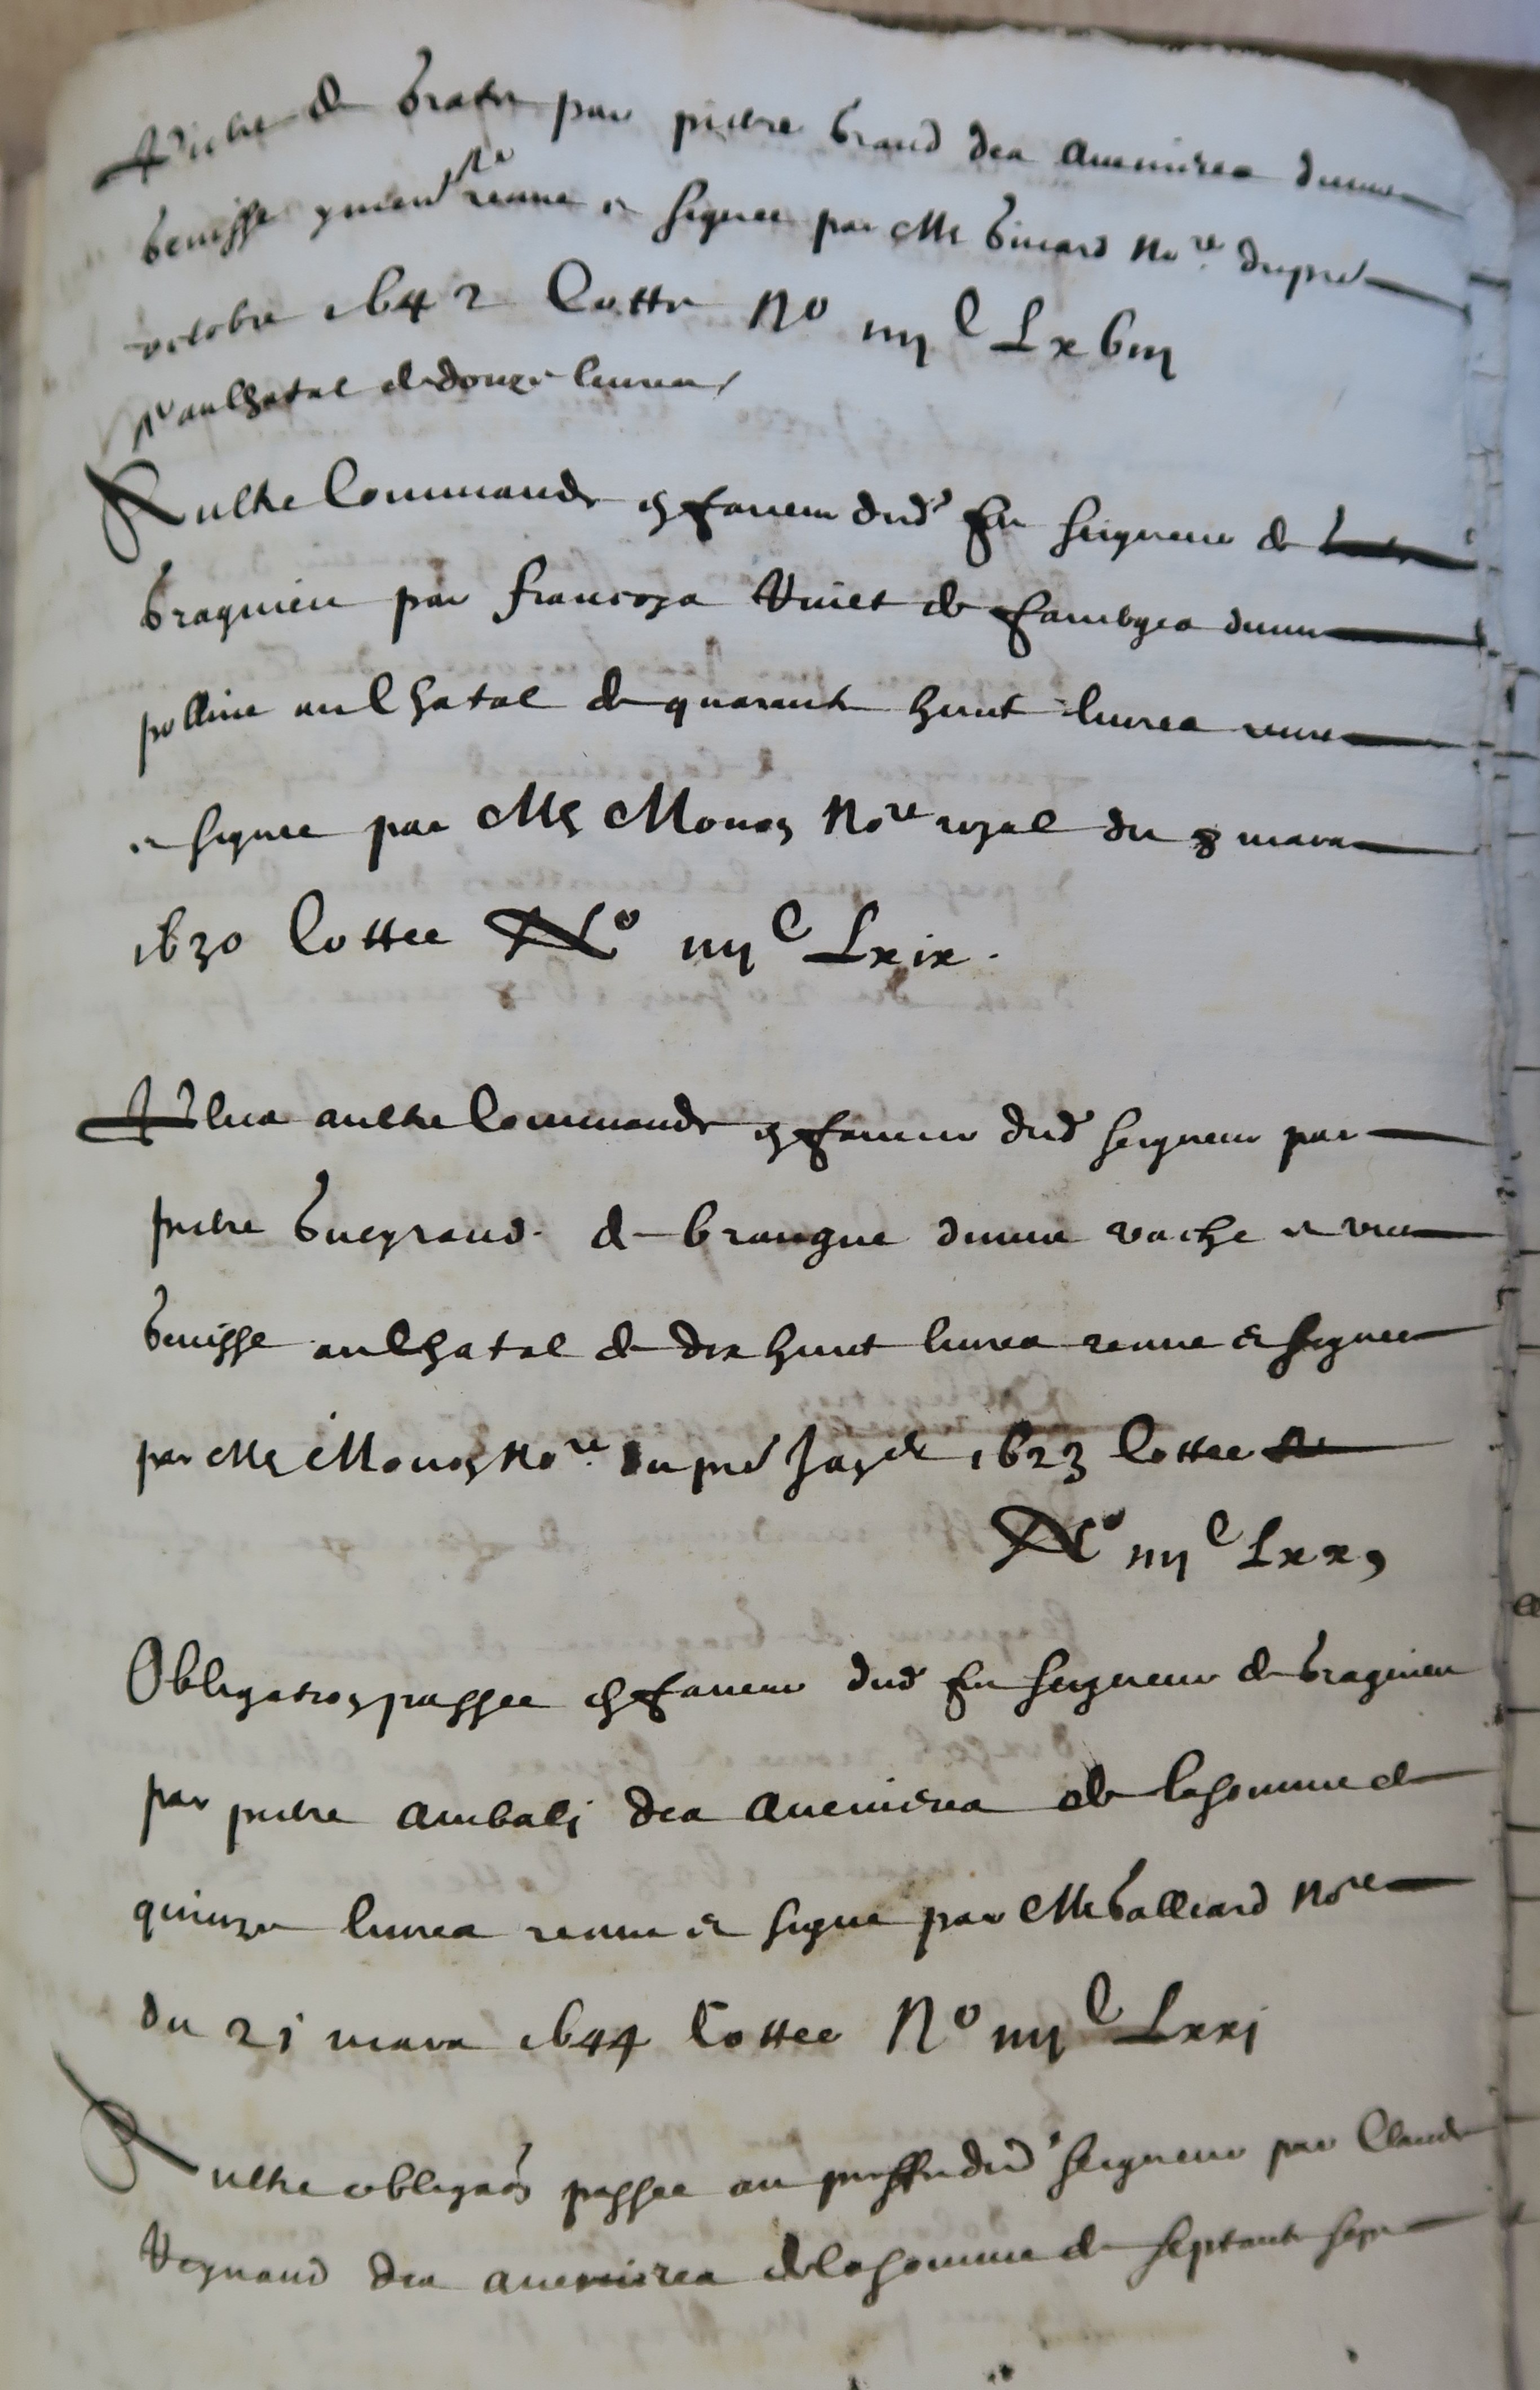 de par pierre braud des avenires dunne
genisse recue et signee par Me no.re du p.r
octobre 1642 Cotte N° iiij C Lxviij
au chatal de douze livres
Aultre Commande en faveur dud. feu seigneur de
bragnieu par francoys de dunne
polline au chatal de quarante huict livres recue
et signee par Me Monon no.re royal du 8 mars
1630 Cottee N° iiij C Lxix.
Plus aultre Commande en faveur dud. seigneur par
pierre de brangue dunne vache et une
genisse au chatal de dix huict livres recue et signee
par Me Monon no.re du p.r 1623 Cottee
N° iiij C Lxx,
Obligation passee en faveur dud feu seigneur de bragnieu
par pierre ambali des avenires de la somme de
quinze livres recue et signe par Me galliard no.re
du 21 mars 1644 Cottee N° iiij C Lxxj
Aultre obligaon passee au dud seigneur par Claude
Reynaud des avenires de la somme de septante sept